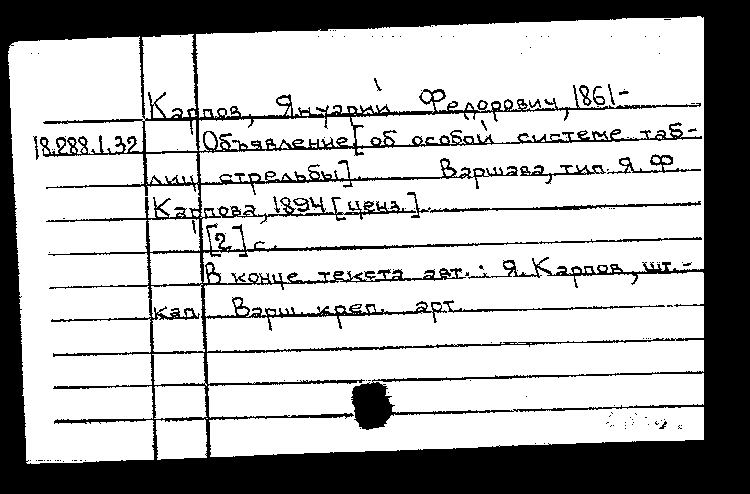 Карпов, Януарий Федорович, 1861-
18.288.1.32 Объявление [об особой системе таб-
лиц стрельбы]. Варшава, тип. Я. Ф.
Карпова, 1894 [ценз.].
[2] с.
В конце текста авт.: Я. Карпов, шт.-
кап. Варш. креп. арт.